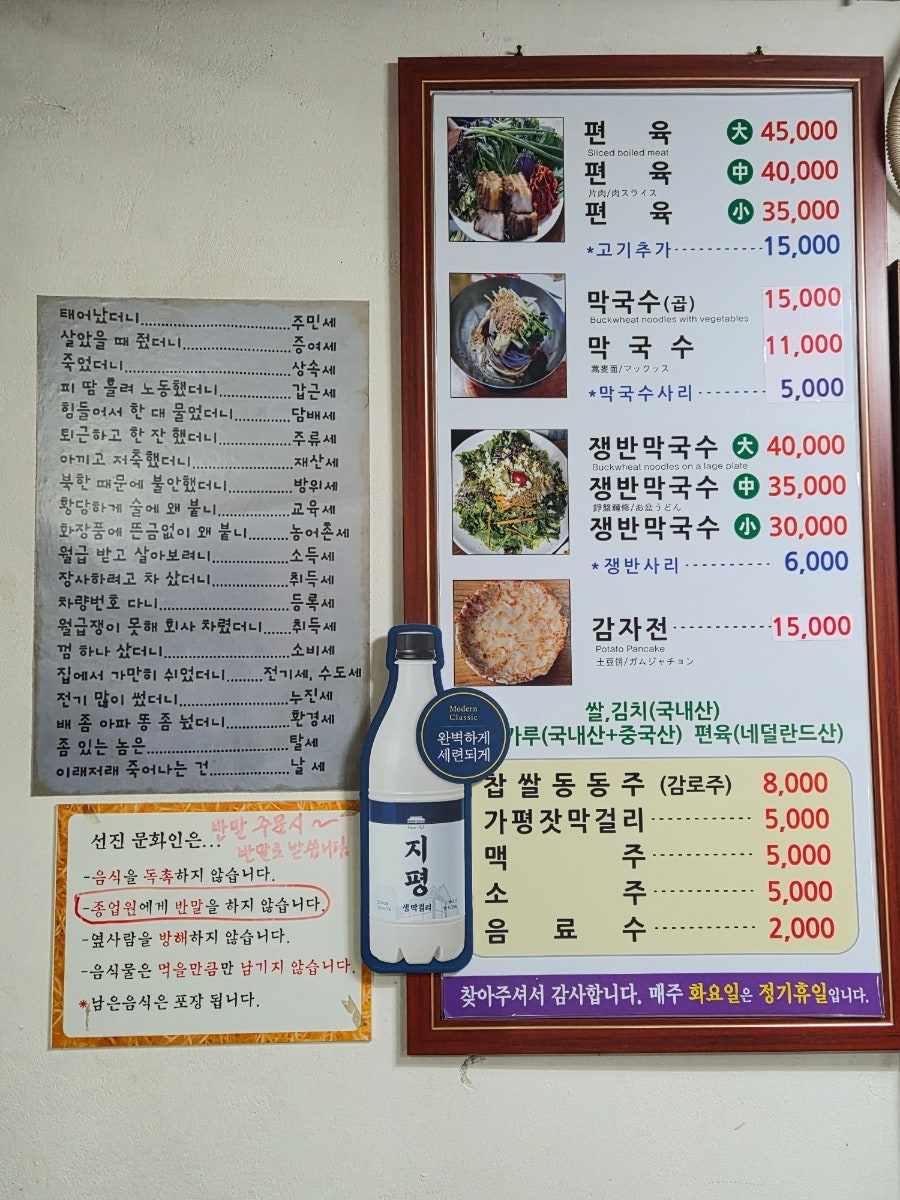 태어났더니....................................주민세
살았을 때 줬더니..........................증여세
죽었더니........................................상속세
피 땀 흘려 노동했더니..................갑근세
힘들어서 한 대 물었더니..............담배세
퇴근하고 한 잔 했더니..................주류세
아끼고 저축했더니........................재산세
북한 때문에 불안했더니................방위세
황당하게 술에 왜 붙니..................교육세
화장품에 뜬금없이 왜 붙니..........농어촌세
월급 받고 살아보려니...................소득세
장사하려고 차 샀더니...................취득세
차량번호 다니...............................등록세
월급쟁이 못해 회사 차렸더니.......취득세
껌 하나 샀더니.............................소비세
집에서 가만히 쉬었더니........전기세, 수도세
전기 많이 썼더니..........................누진세
배 좀 아파 똥 좀 눴더니...............환경세
좀 있는 놈은.................................탈세
이래저래 죽어나는 건....................날 세
선진 문화인은...
반말 주문시 ~
반말로 받습니다!
-음식을 독촉하지 않습니다.
-종업원에게 반말을 하지 않습니다.
-옆사람을 방해하지 않습니다.
-음식물은 먹을만큼만 남기지 않습니다.
*남은음식은 포장 됩니다.
Modern
Classic
완벽하게
세련되게
지평
생막걸리
편 육 大 45,000
Sliced boiled meat
편 육 中 40,000
片肉/肉スライス
편 육 小 35,000
*고기추가----------15,000
막국수(곱) 15,000
Buckwheat noodles with vegetables
막 국 수 11,000
蕎麦面/マックッス
*막국수사리-------- 5,000
쟁반막국수 大 40,000
Buckwheat noodles on a lage plate
쟁반막국수 中 35,000
錚盤麵條/お盆うどん
쟁반막국수 小 30,000
*쟁반사리---------- 6,000
감자전----------15,000
Potato Pancake
土豆饼/ガムジャチョン
쌀,김치(국내산)
가루(국내산+중국산) 편육(네덜란드산)
찹쌀동동주 (감로주) 8,000
가평잣막걸리---------- 5,000
맥 주---------- 5,000
소 주---------- 5,000
음 료 수---------- 2,000
찾아주셔서 감사합니다. 매주 화요일은 정기휴일입니다.